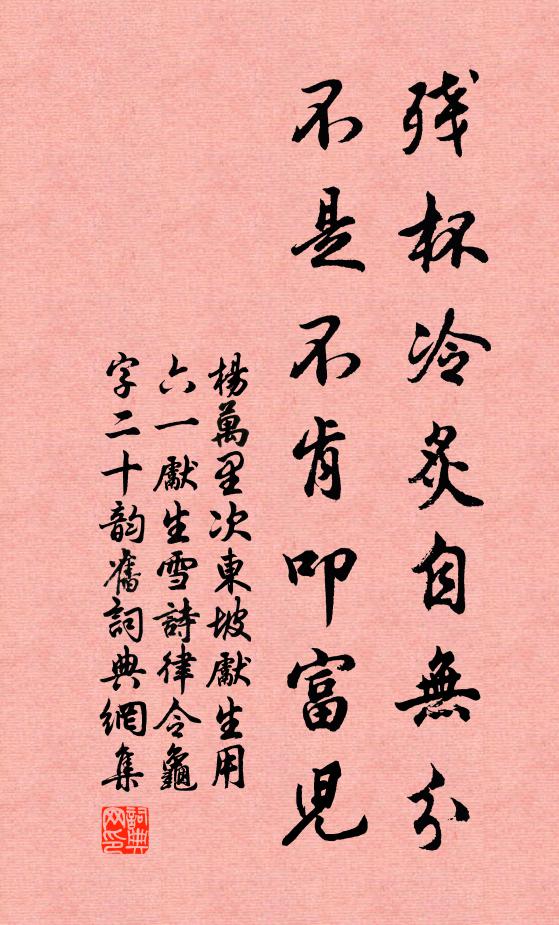 残杯冷炙自無分
不是不肯叩富児
楊萬里次東坡獻生用
六一獻生雪詩律令龜
字二十韵舊詞典網集
詞典网印